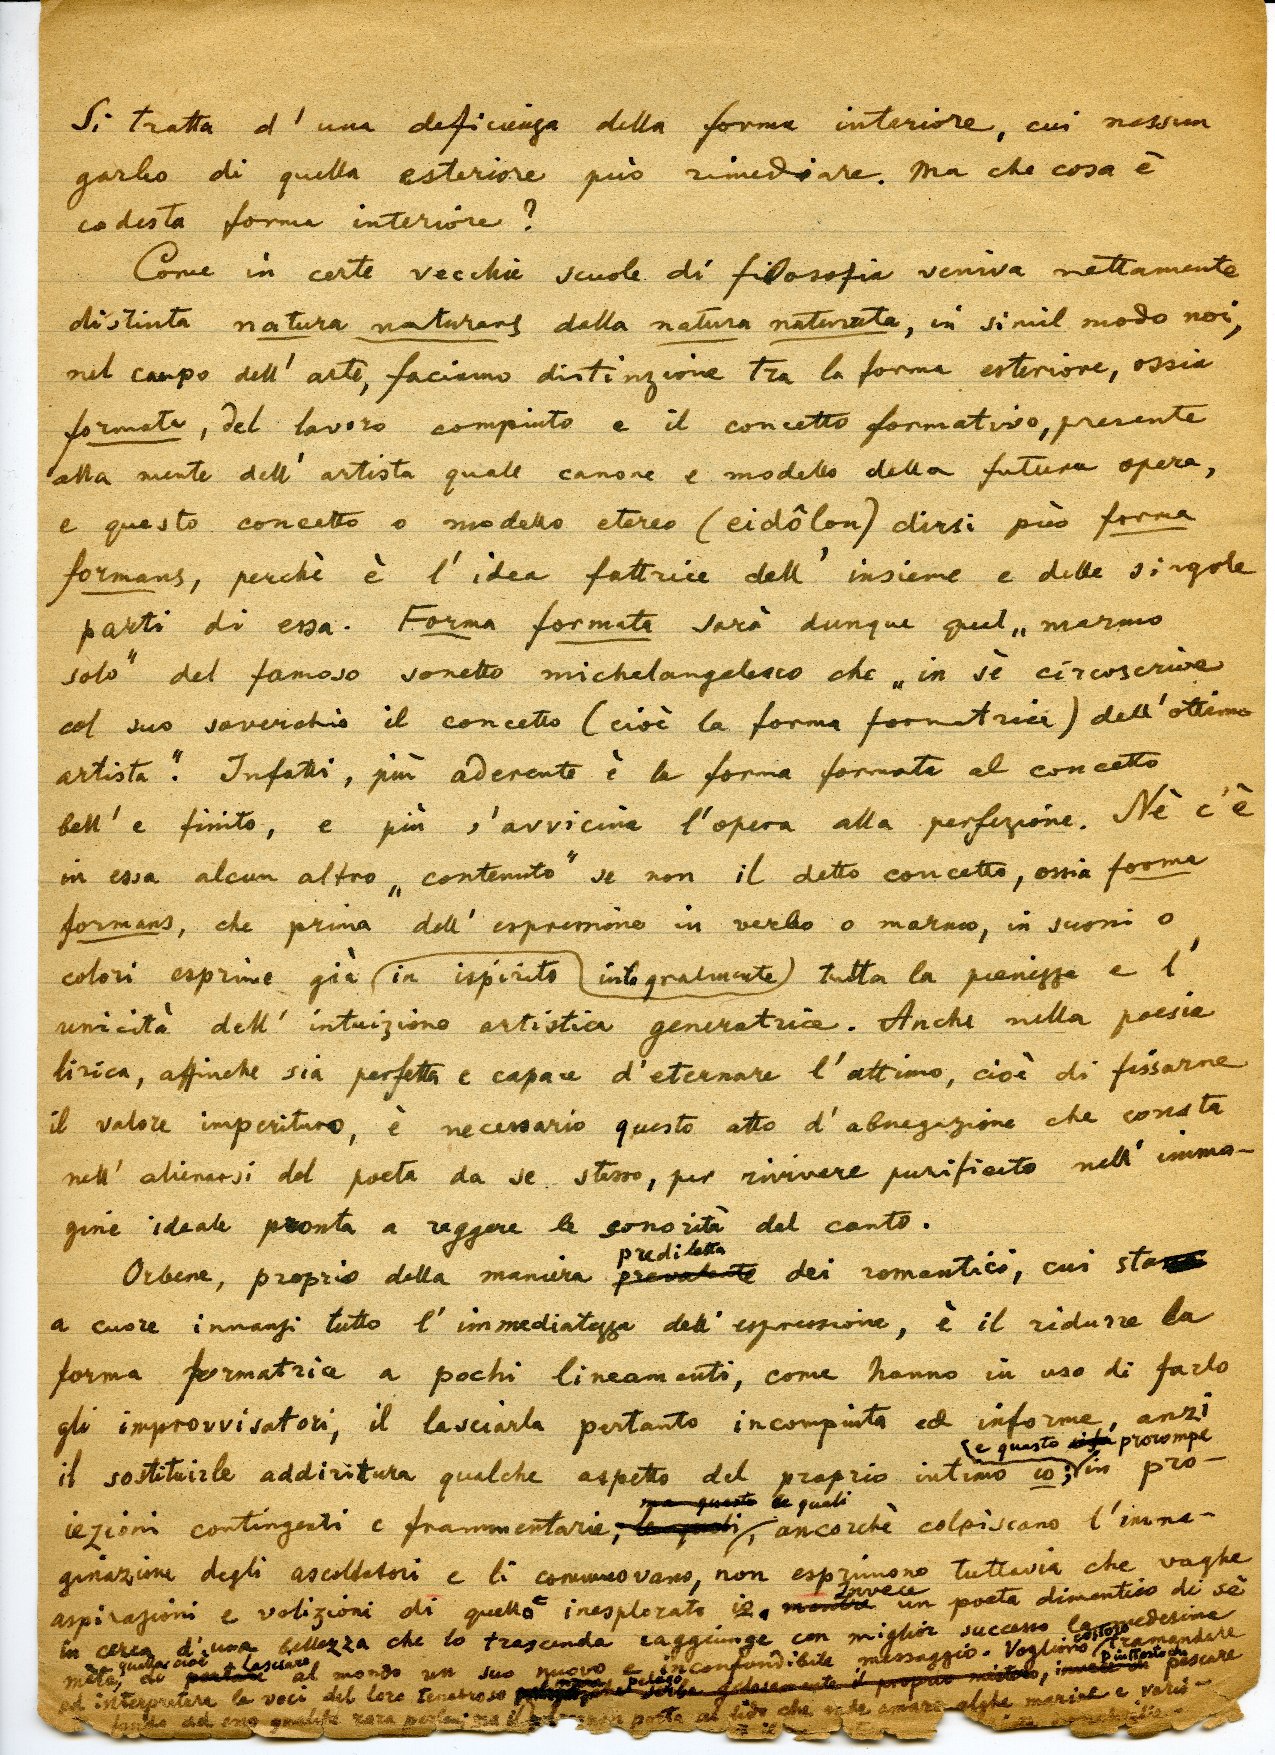 Si tratta d'una deficienza della forma interiore, cui nessun
garbo di quella esteriore può rimediare. Ma che cosa è
codesta forma interiore?
Come in certe vecchie scuole di filosofia veniva nettamente
distinta natura naturans dalla natura naturata, in simil modo noi,
nel campo dell'arte, facciamo distinzione tra la forma esteriore, ossia
formata, del lavoro compiuto e il concetto formativo, presente
alla mente dell'artista quale canone e modello della futura opera,
e questo concetto o modello etereo (eidôlon) dirsi può forma
formans, perchè è l'idea fattrice dell'insieme e delle singole
parti di essa. Forma formata sarà dunque quel „marmo
solo" del famoso sonetto michelangelesco che „in sè circoscrive
col suo soverchio il concetto (cioè la forma formatrice) dell'ottimo
artista". Infatti, più aderente è la forma formata al concetto
bell'e finito, e più s'avvicina l'opera alla perfezione. Nè c'è
in essa alcun altro „contenuto" se non il detto concetto, ossia forma
formans, che prima dell'espressione in verbo o marmo, in suoni o
colori esprime già in ispirito integralmente tutta la pienezza e l'
unicità dell'intuizione artistica generatrice. Anche nella poesia
lirica, affinche sia perfetta e capace d'eternare l'attimo, cioè di fissarne
il valore imperituro, è necessario questo atto d'abnegazione che consta
nell'alienarsi del poeta da se stesso, per rivivere purificato nell'imma-
gine ideale pronta a reggere le sonorità del canto.
prediletta
Orbene, proprio della maniera prevalente dei romantici, cui sta
a cuore innanzi tutto l'immediatezza dell'espressione, è il ridurre la
forma formatrice a pochi lineamenti, come hanno in uso di farlo
gli improvvisatori, il lasciarla pertanto incompiuta ed informe, anzi
e questo prorompe
il sostituirle addirittura qualche aspetto del proprio intimo io; in pro-
ma questo le quali
iezioni contingenti e frammentarie, le quali, ancorchè colpiscano l'imma-
ginazione degli ascoltatori e li commuovano, non esprimono tuttavia che vaghe
invece
aspirazioni e volizioni di quello inesplorato io, mentre un poeta dimentico di sè
in cerca d'una bellezza che lo trascenda raggiunge con miglior successo la medesima
quella cioè lasciare costoro
meta, di portare al mondo un suo nuovo e inconfondibile messaggio. Vogliono tramandare
piuttosto che
ed interpretare le voci del loro tenebroso serba gelosamente il proprio mistero, pescare